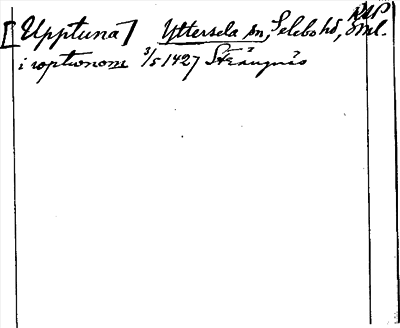 RAP
[Upptuna] Yttersela sn, Selebo hd, Sml.
i optunom 3/5 1427 Strängnäs